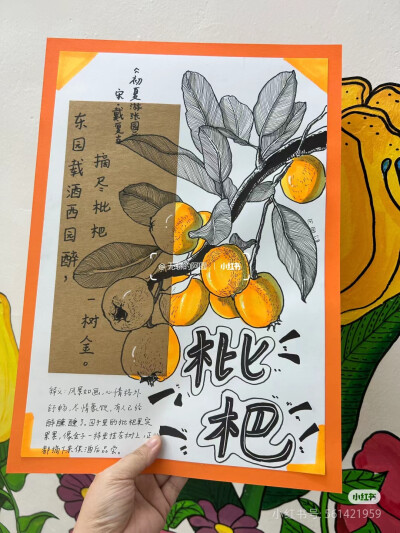 《初夏游张园》
宋·戴复古
东园载酒西园醉，
摘尽枇杷
一树金。
枇
杷
释义：风景如画，心情格外
舒畅，尽情豪饮，有人已经
醉醺醺了。园子里的枇杷果实
累累，像金子一样垂挂在树上，正
好摘下来供酒后品尝。
小红书
小红书
小红书号: 561421959